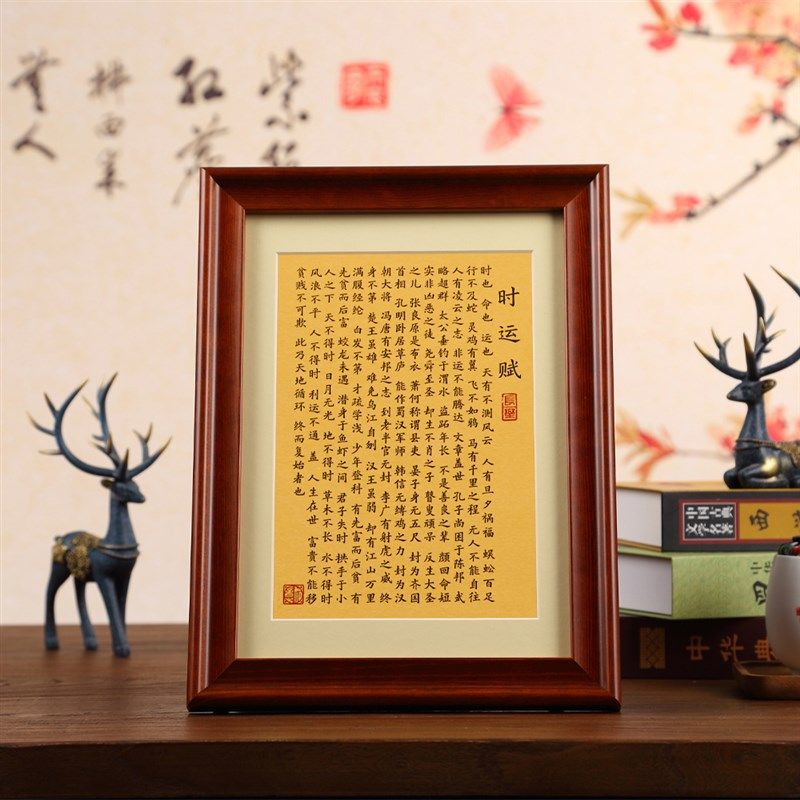 紫陌
红尘
拂面来
人
时运赋
时也 命也 运也 天有不测风云 人有旦夕祸福 蜈蚣百足
行不及蛇 灵鸡有翼 飞不如鸦 马有千里之程 无人不能自往
人有凌云之志 非运不能腾达 文章盖世 孔子尚困于陈邦 武
略超群 太公垂钓于渭水 盗跖年长 不是善良之辈 颜回命短
实非凶恶之徒 尧舜至圣 却生不肖之子 瞽叟顽呆 反生大圣
之儿 张良原是布衣 萧何称谓县吏 晏子身无五尺 封为齐国
首相 孔明卧居草庐 能作蜀汉军师 韩信无缚鸡之力 封为汉
朝大将 冯唐有安邦之志 到老半官无封 李广有射虎之威 终
身不第 楚王虽雄 难免乌江自刎 汉王虽弱 却有江山万里
满腹经纶 白发不第 才疏学浅 少年登科 有先富而后贫 有
先贫而后富 蛟龙未遇 潜身于鱼虾之间 君子失时 拱手于小
人之下 天不得时 日月无光 地不得时 草木不长 水不得时
风浪不平 人不得时 利运不通 盖 人生在世 富贵不能移
贫贱不可欺 此乃天地循环 终而复始者也
中国古典
文学名著
西
中华
中华典